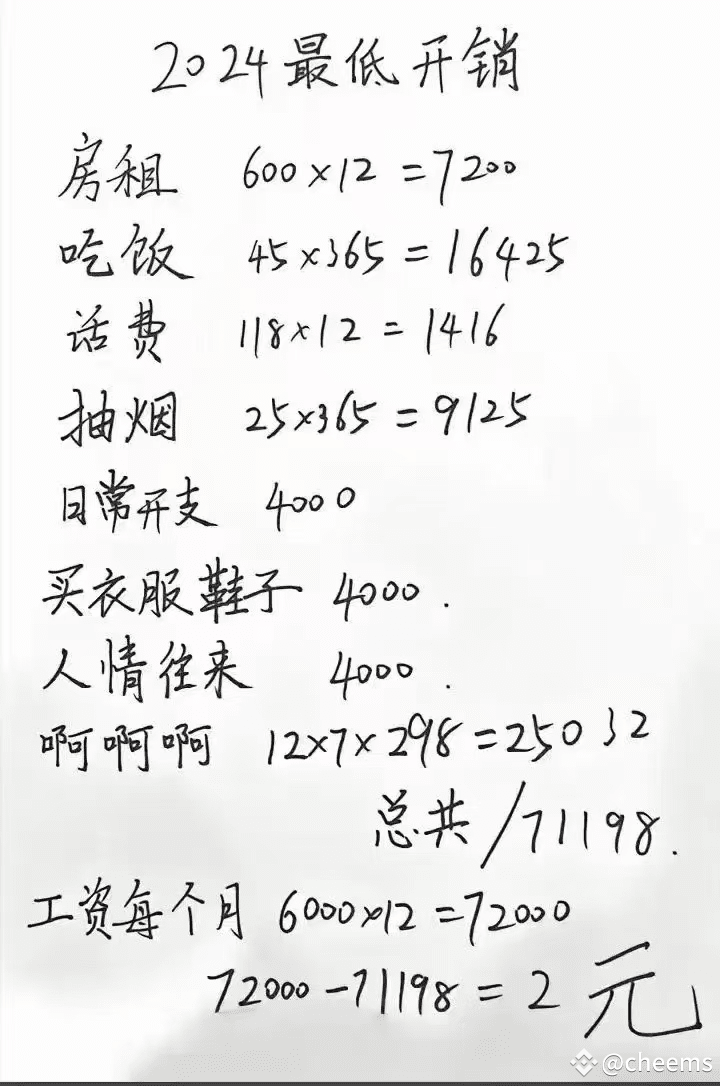 2024最低开销
房租 600×12=7200
吃饭 45×365=16425
话费 118×12=1416
抽烟 25×365=9125
日常开支 4000
买衣服鞋子 4000.
人情往来 4000.
啊啊啊 12×7×298=25032
总共/71198.
工资每个月 6000×12=72000
72000-71198=2元
@cheems